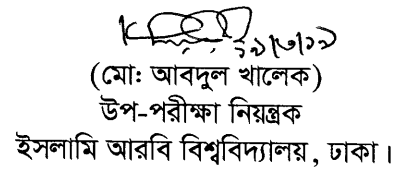 (মো: আবদুল খালেক)
উপ-পরীক্ষা নিয়ন্ত্রক
ইসলামি আরবি বিশ্ববিদ্যালয়, ঢাকা।